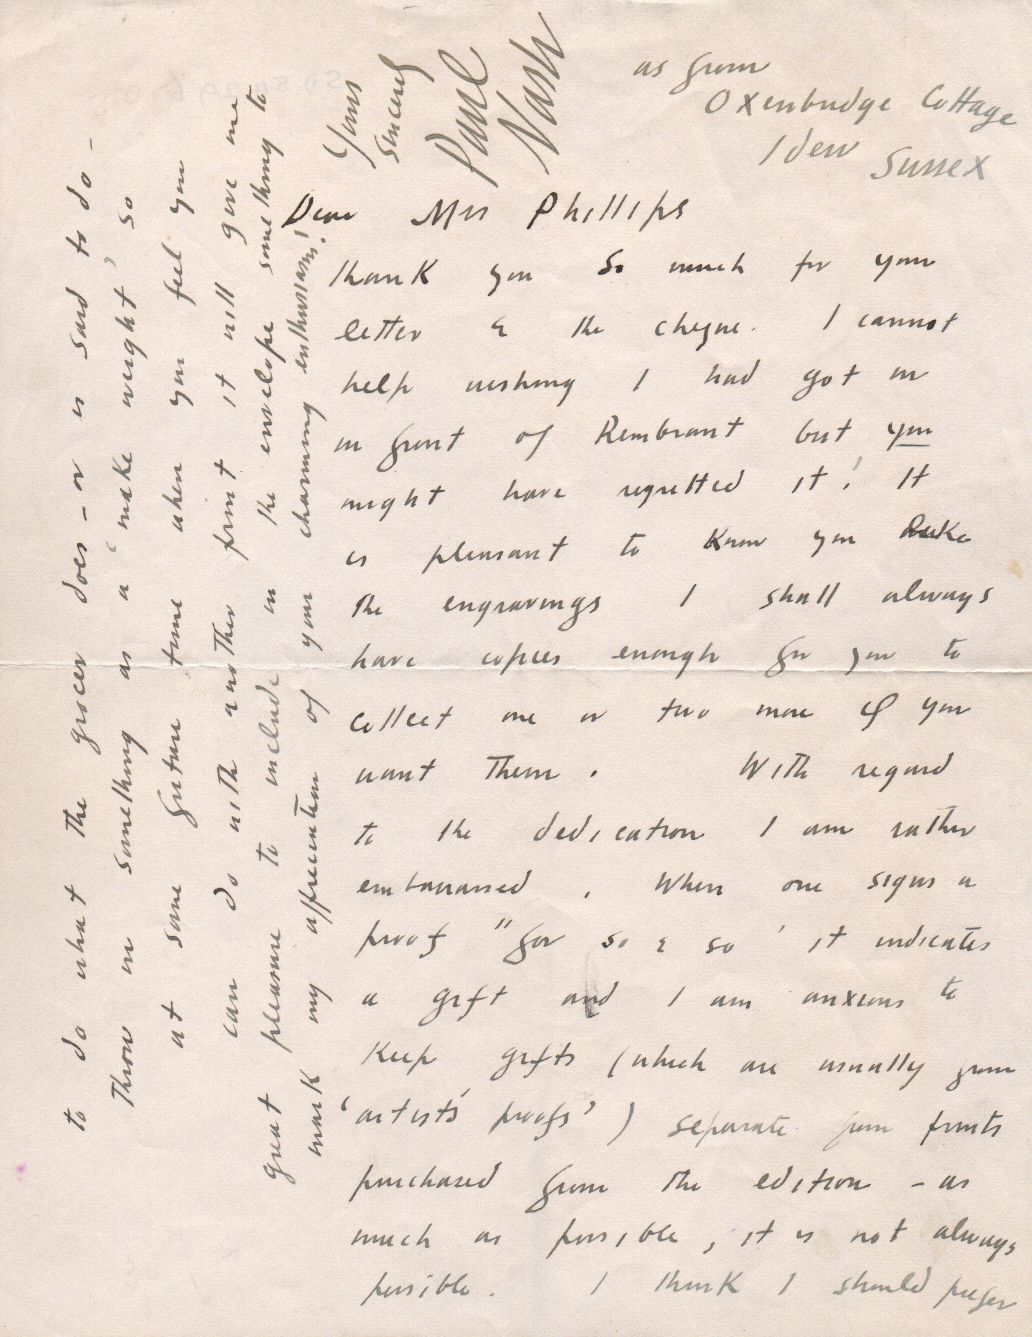 as from
Oxenbridge Cottage
Iden Sussex
Dear Mrs Phillips
Thank you so much for your
letter & the cheque. I cannot
help wishing I had got in
in front of Rembrant but you
might have regretted it! It
is pleasant to know you like
the engravings I shall always
have copies enough for you to
collect one or two more if you
want them. With regard
to the dedication I am rather
embarrassed. When one signs a
proof "for so & so' it indicates
a gift and I am anxious to
keep gifts (which are usually from
'artists' proofs') separate from prints
purchased from the edition - as
much as possible, it is not always
possible. I think I should prefer
to do what the grocer does - or is said to do -
throw in something as a 'make weight', so
at some future time when you feel you
can do with another print it will give me
great pleasure to include in the envelope something to
mark my appreciation of your charming enthusiasm!
Yours
sincerely
Paul
Nash